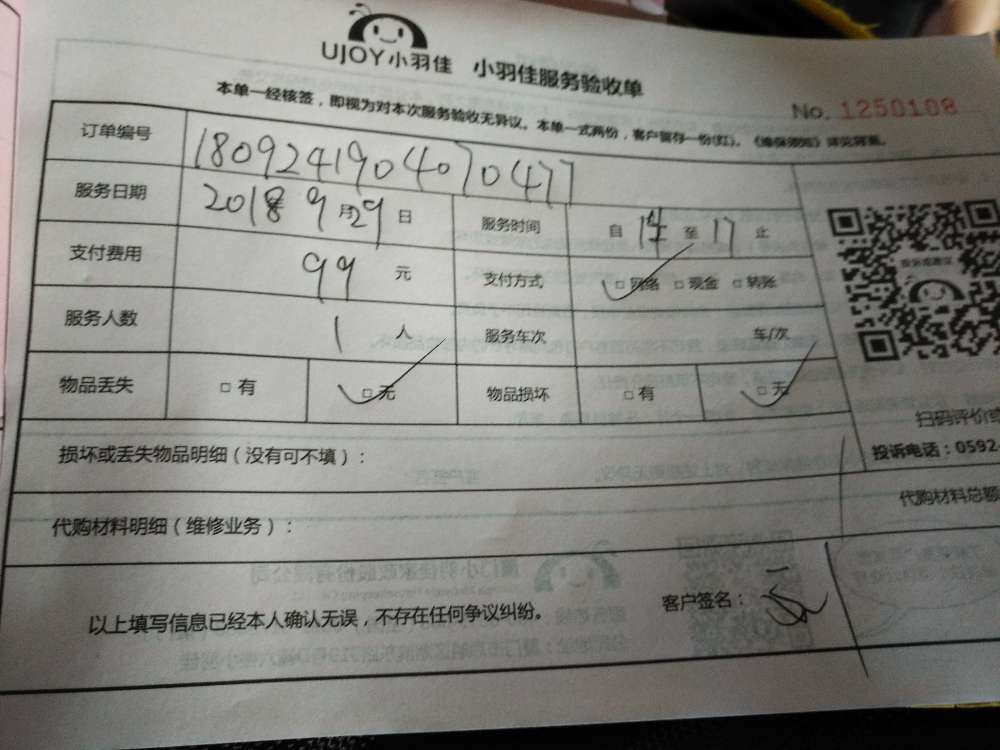 UJOY小羽佳 小羽佳服务验收单
No. 1250108
本单一经核签，即视为对本次服务验收无异议。本单一式两份，客户留存一份(红)。《维保须知》详见背面。
订单编号 1809241904070477
服务日期 2018年9月29日 服务时间 自14至17止
支付费用 99元 支付方式 □网络 □现金 □转账
服务人数 1人 服务车次 车/次
物品丢失 □有 □无 物品损坏 □有 □无
扫码评价或
投诉电话：0592
损坏或丢失物品明细（没有可不填）：
代购材料总额
代购材料明细（维修业务）：
以上填写信息已经本人确认无误，不存在任何争议纠纷。 客户签名：